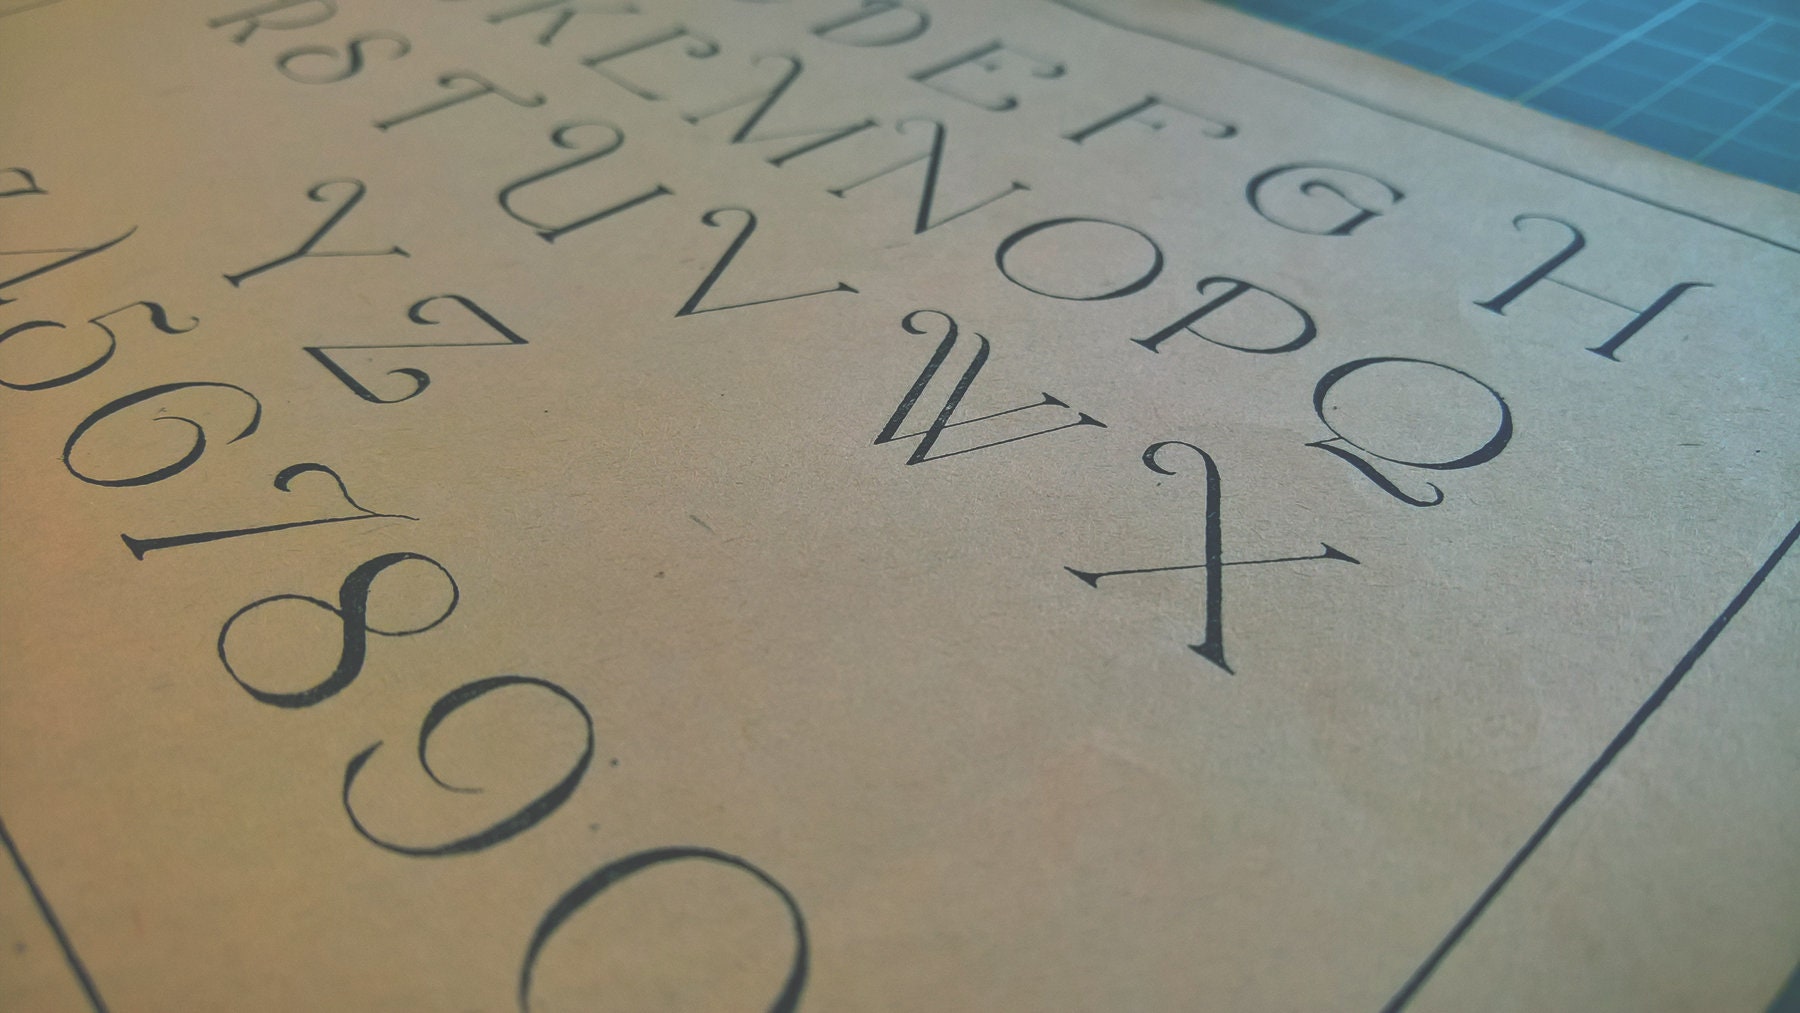 D E F G H
K L M N O P Q
R S T U V W X
Y Z
5 6 7 8 9 0